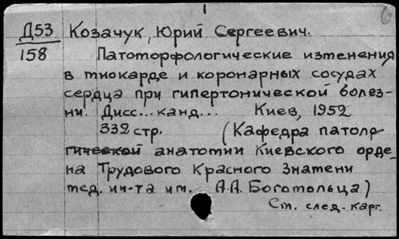 Д53 Козачук, Юрий Сергеевич.
158 Патоморфологические изменения
в миокарде и коронарных сосудах
сердца при гипертонической болез-
ни. Дисс... канд... Киев, 1952
332 стр. (Кафедра патоло
гической анатомии Киевского орде-
на Трудового Красного Знамени
мед. ин-та им. А.А. Богомольца)
См. след. карт.